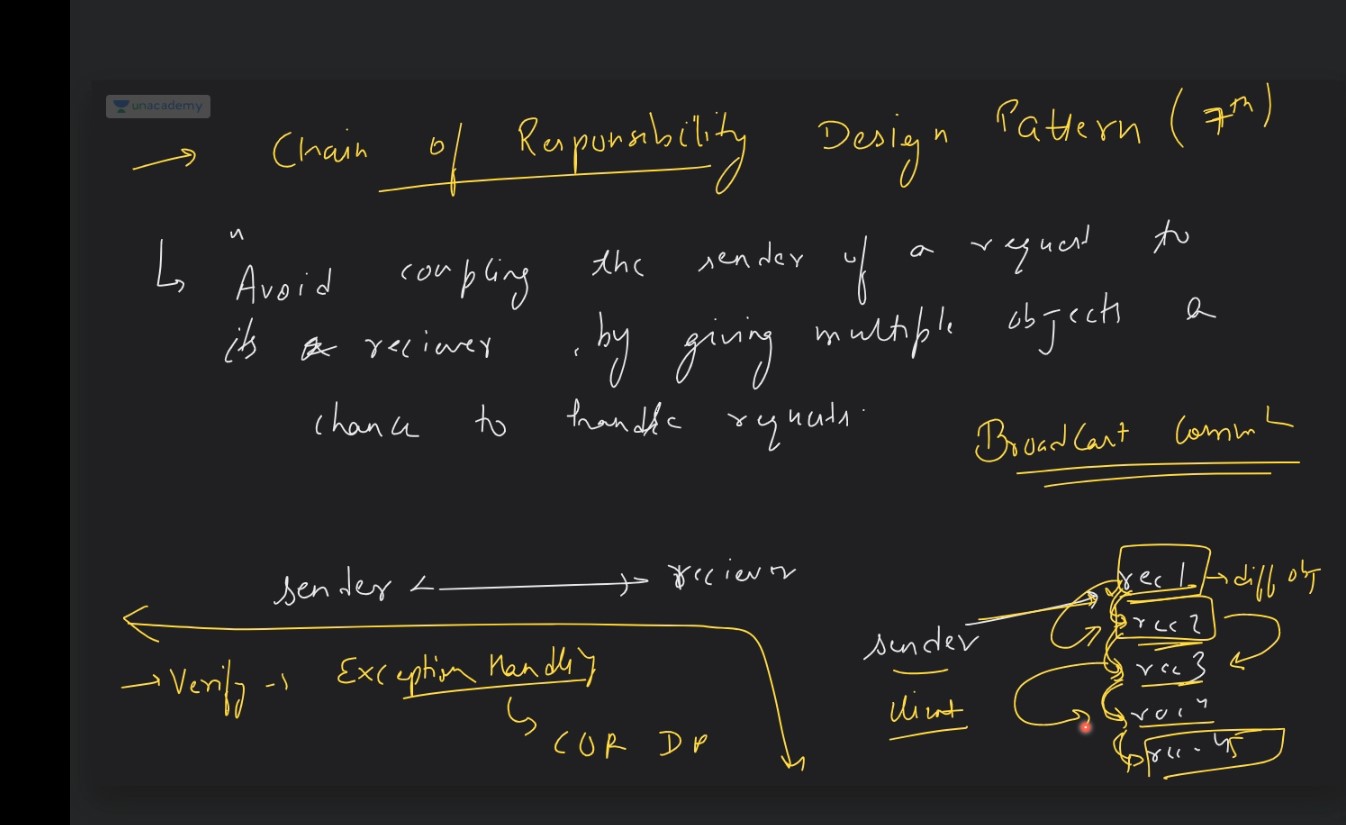 unacademy
→ Chain of Responsibility Design Pattern (7th)
↳ " Avoid coupling the sender of a request to
its reciever , by giving multiple objects a
chance to handle requests.
BroadCast Comm
sender ↔ reciever
→ Verify → Exception Handling
↳ COR DP
sender
client
rec 1 → diff obj
rec 2
rec 3
rec 4
rec - 5